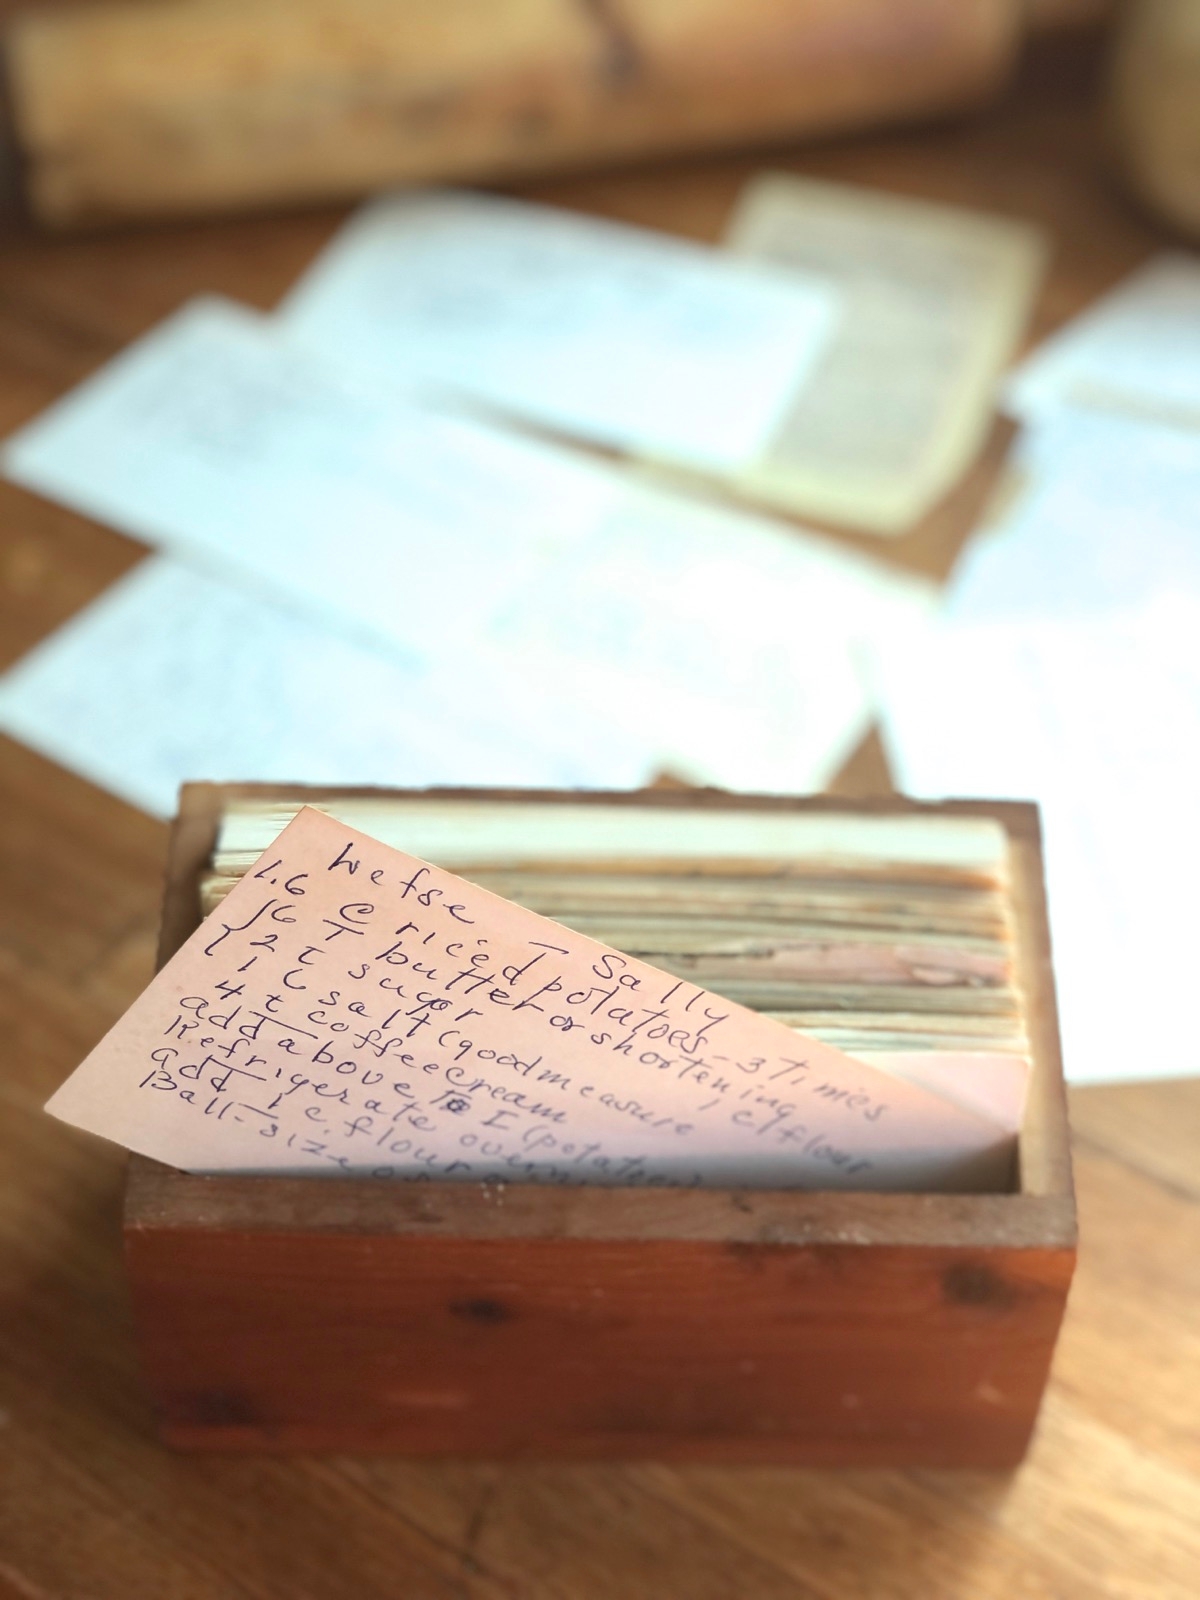 Lefse - Sally
1. 6 C riced potatoes - 3 times
6 T butter or shortening
2 t sugar 1 c/flour
1 t salt (good measure
4 t coffee cream
add above to I (potatoes)
Refrigerate
add 1 c. flour
Ball-size